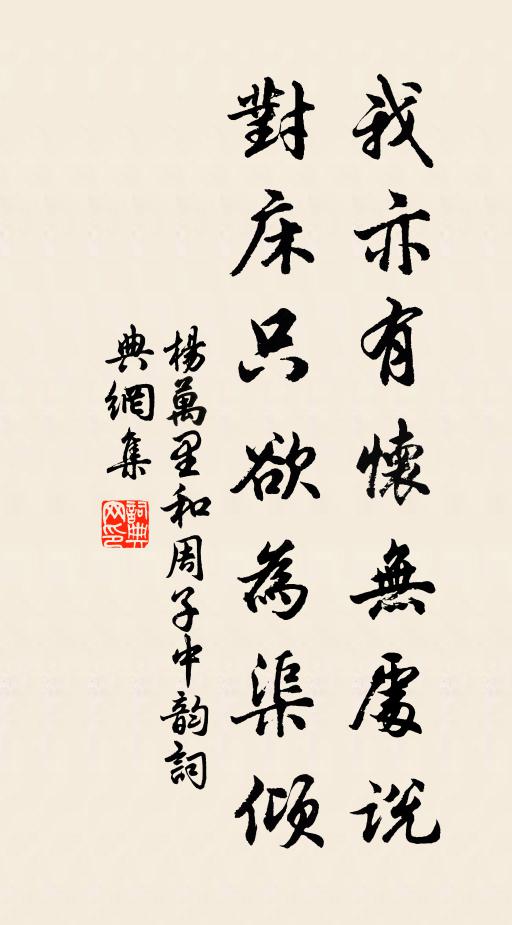 我亦有懷無處說
對床只欲為渠傾
楊萬里和周子中韵詞
典網集
詞典网印